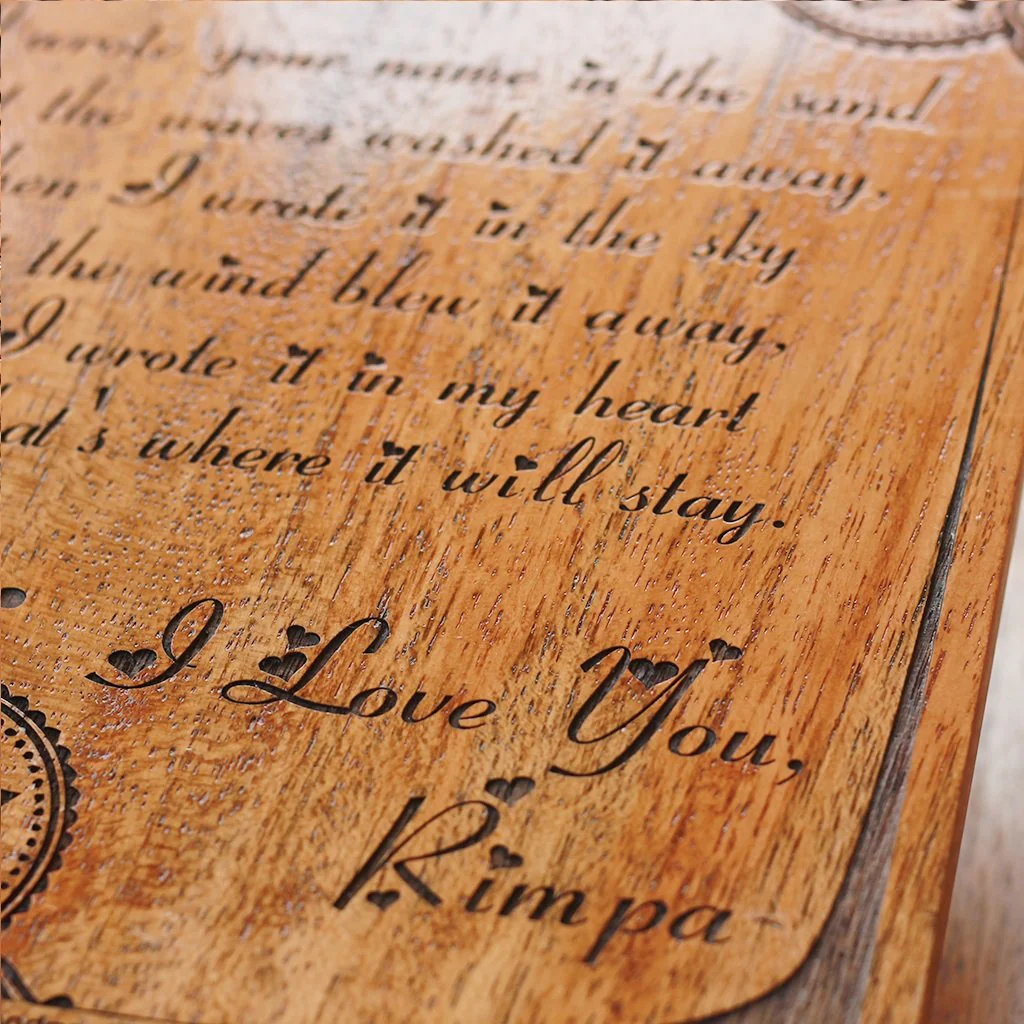 wrote your name in the sand
the waves washed it away,
I wrote it in the sky
the wind blew it away,
I wrote it in my heart
where it will stay.
I Love You,
Rimpa